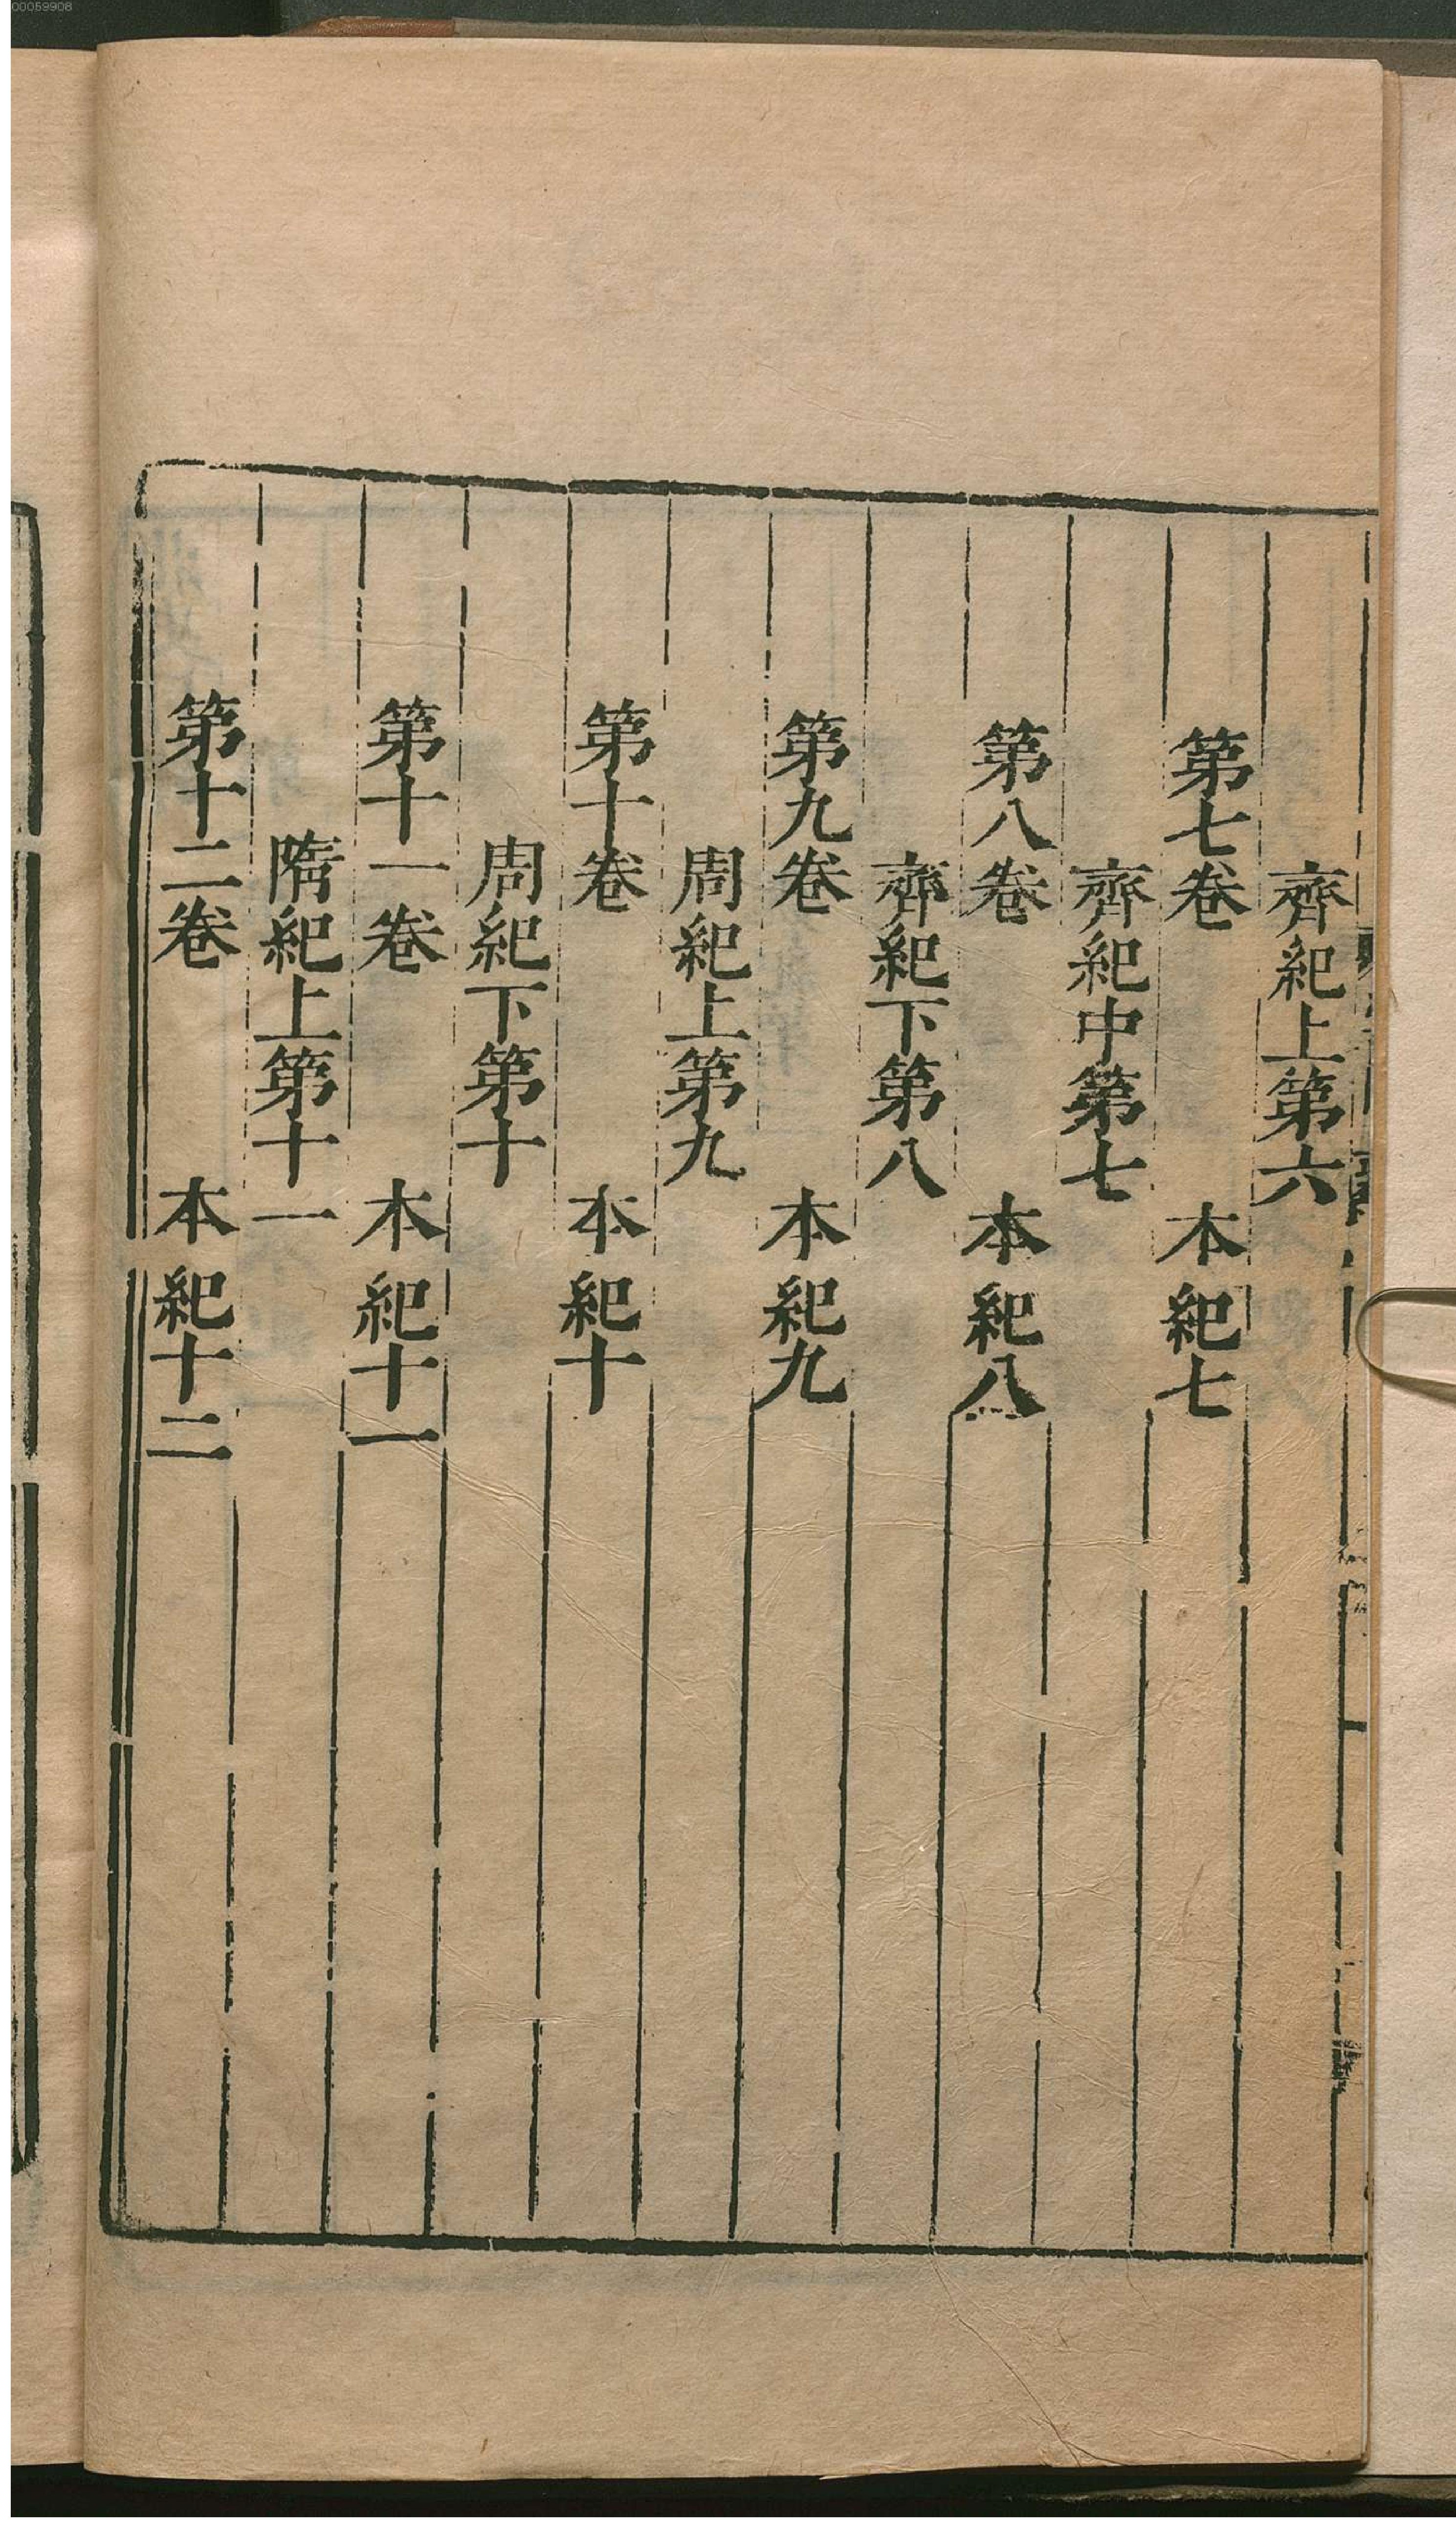 00059908
齊紀上第六
第七卷 本紀七
齊紀中第七
第八卷 本紀八
齊紀下第八
第九卷 本紀九
周紀上第九
第十卷 本紀十
周紀下第十
第十一卷 本紀十一
隋紀上第十一
第十二卷 本紀十二